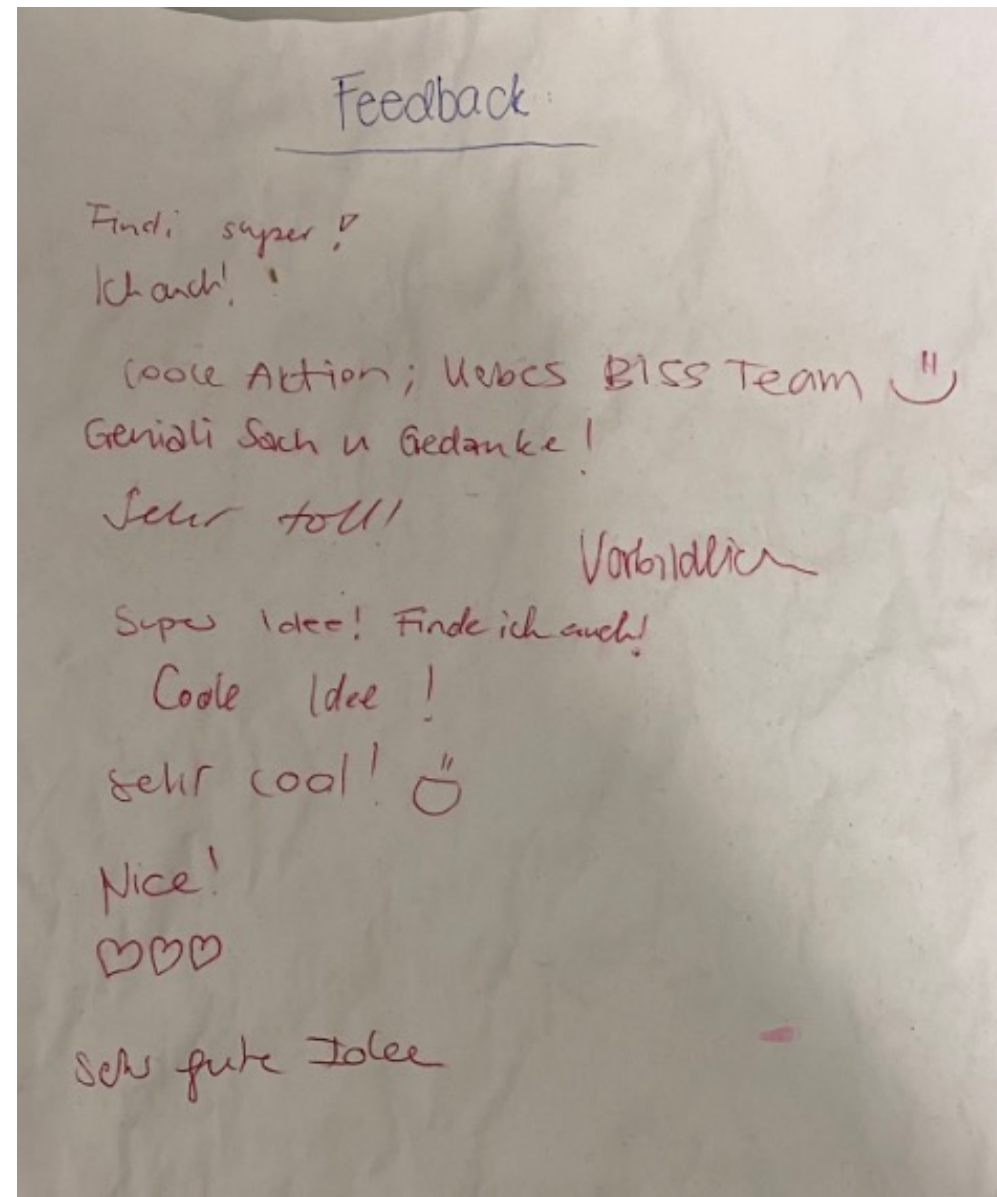 Feedback:
Findi super!
Ich auch! !
Coole Aktion; liebes BISS Team
Geniali Sach u Gedanke!
Sehr toll!
Vorbildlich
Super Idee! Finde ich auch!
Coole Idee!
sehr cool!
Nice!
♡♡♡
Sehr gute Idee